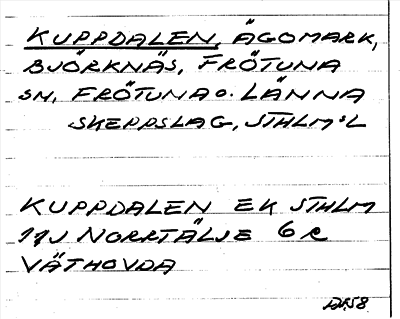 KUPPDALEN, ÄGOMARK,
BJÖRKNÄS, FRÖTUNA
SN, FRÖTUNA O. LÄNNA
SKEPPSLAG, STHLM:S L
KUPPDALEN EK STHLM
11J NORRTÄLJE 6 e
VÄTHOVDA